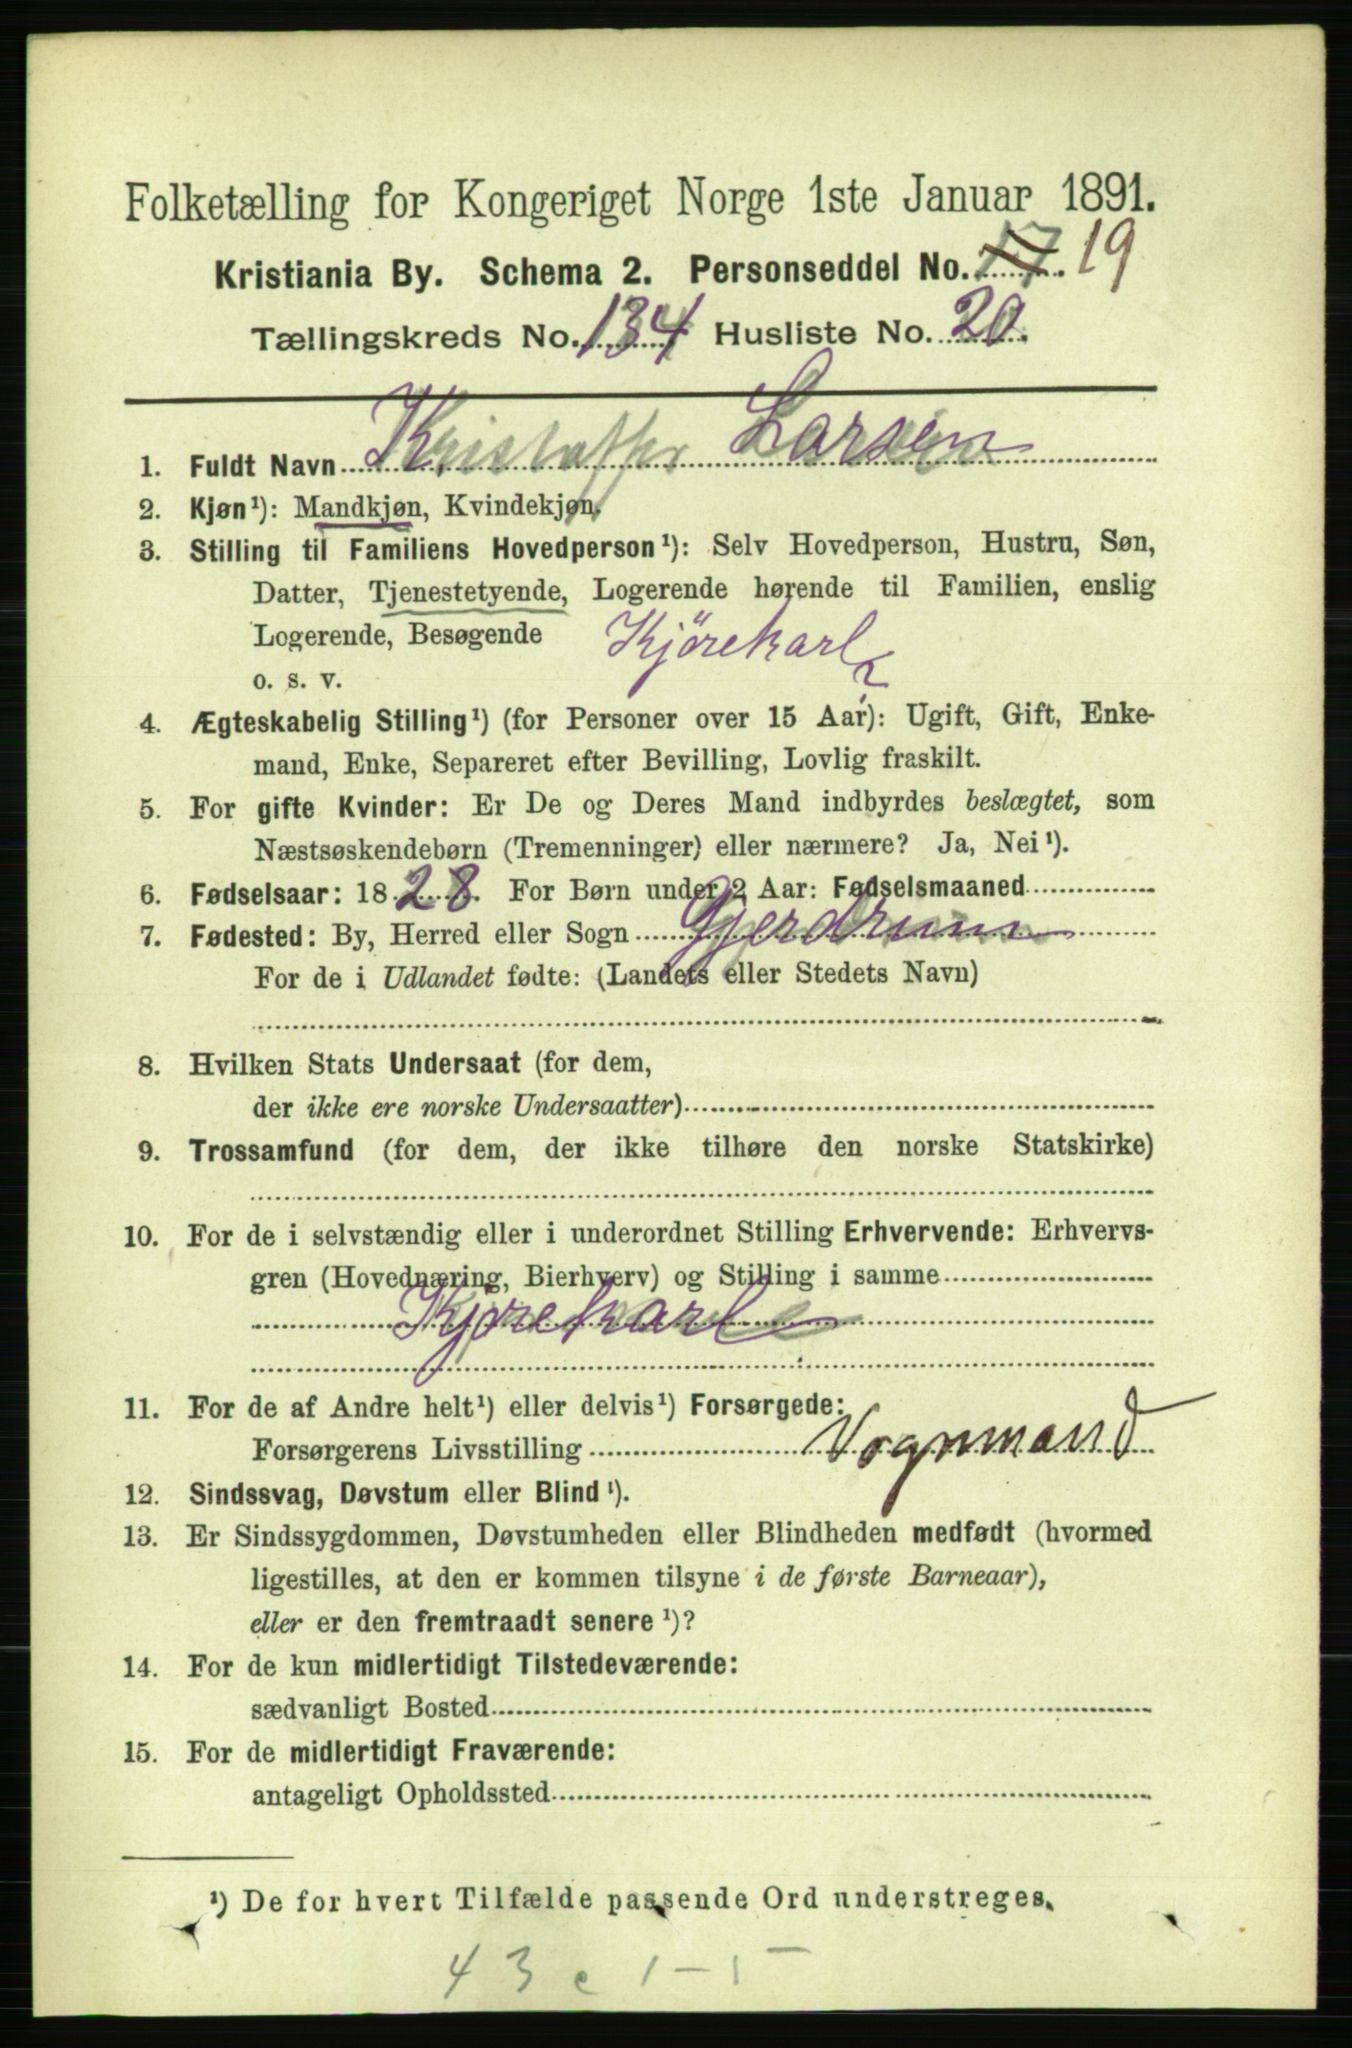 Folketælling for Kongeriget Norge 1ste Januar 1891.
Kristiania By. Schema 2. Personseddel No. 17 19
Tællingskreds No. 134 Husliste No. 20.
1. Fuldt Navn Kristoffer Larsen
2. Kjøn¹): Mandkjøn, Kvindekjøn.
3. Stilling til Familiens Hovedperson¹): Selv Hovedperson, Hustru, Søn,
Datter, Tjenestetyende, Logerende hørende til Familien, enslig
Logerende, Besøgende Kjörekarl
o. s. v.
4. Ægteskabelig Stilling¹) (for Personer over 15 Aar): Ugift, Gift, Enke-
mand, Enke, Separeret efter Bevilling, Lovlig fraskilt.
5. For gifte Kvinder: Er De og Deres Mand indbyrdes beslægtet, som
Næstsøskendebørn (Tremenninger) eller nærmere? Ja, Nei¹).
6. Fødselsaar: 1828. For Børn under 2 Aar: Fødselsmaaned
7. Fødested: By, Herred eller Sogn Gjerdrum
For de i Udlandet fødte: (Landets eller Stedets Navn)
8. Hvilken Stats Undersaat (for dem,
der ikke ere norske Undersaatter)
9. Trossamfund (for dem, der ikke tilhøre den norske Statskirke)
10. For de i selvstændig eller i underordnet Stilling Erhvervende: Erhvervs-
gren (Hovednæring, Bierhverv) og Stilling i samme
Kjørekarl
11. For de af Andre helt¹) eller delvis¹) Forsørgede:
Forsørgerens Livsstilling Vognmand
12. Sindssvag, Døvstum eller Blind¹).
13. Er Sindssygdommen, Døvstumheden eller Blindheden medfødt (hvormed
ligestilles, at den er kommen tilsyne i de første Barneaar),
eller er den fremtraadt senere¹)?
14. For de kun midlertidigt Tilstedeværende:
sædvanligt Bosted
15. For de midlertidigt Fraværende:
antageligt Opholdssted
¹) De for hvert Tilfælde passende Ord understreges.
43 c 1-1